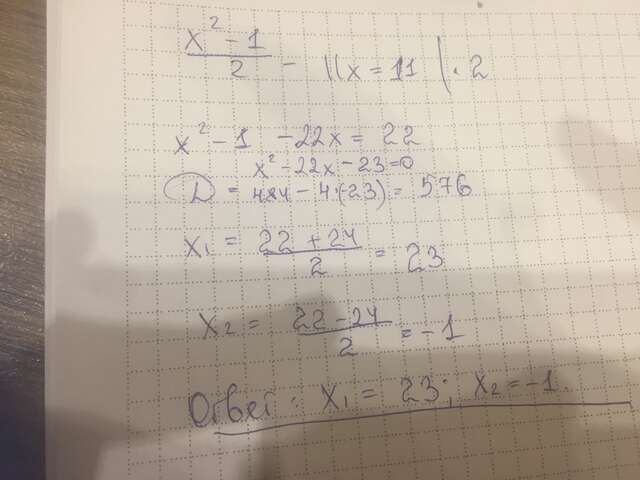 x² - 1 / 2 - 11x = 11 | · 2
x² - 1 - 22x = 22
x² - 22x - 23 = 0
D = 484 - 4·(-23) = 576
x₁ = 22 + 24 / 2 = 23
x₂ = 22 - 24 / 2 = -1
Ответ: x₁ = 23; x₂ = -1